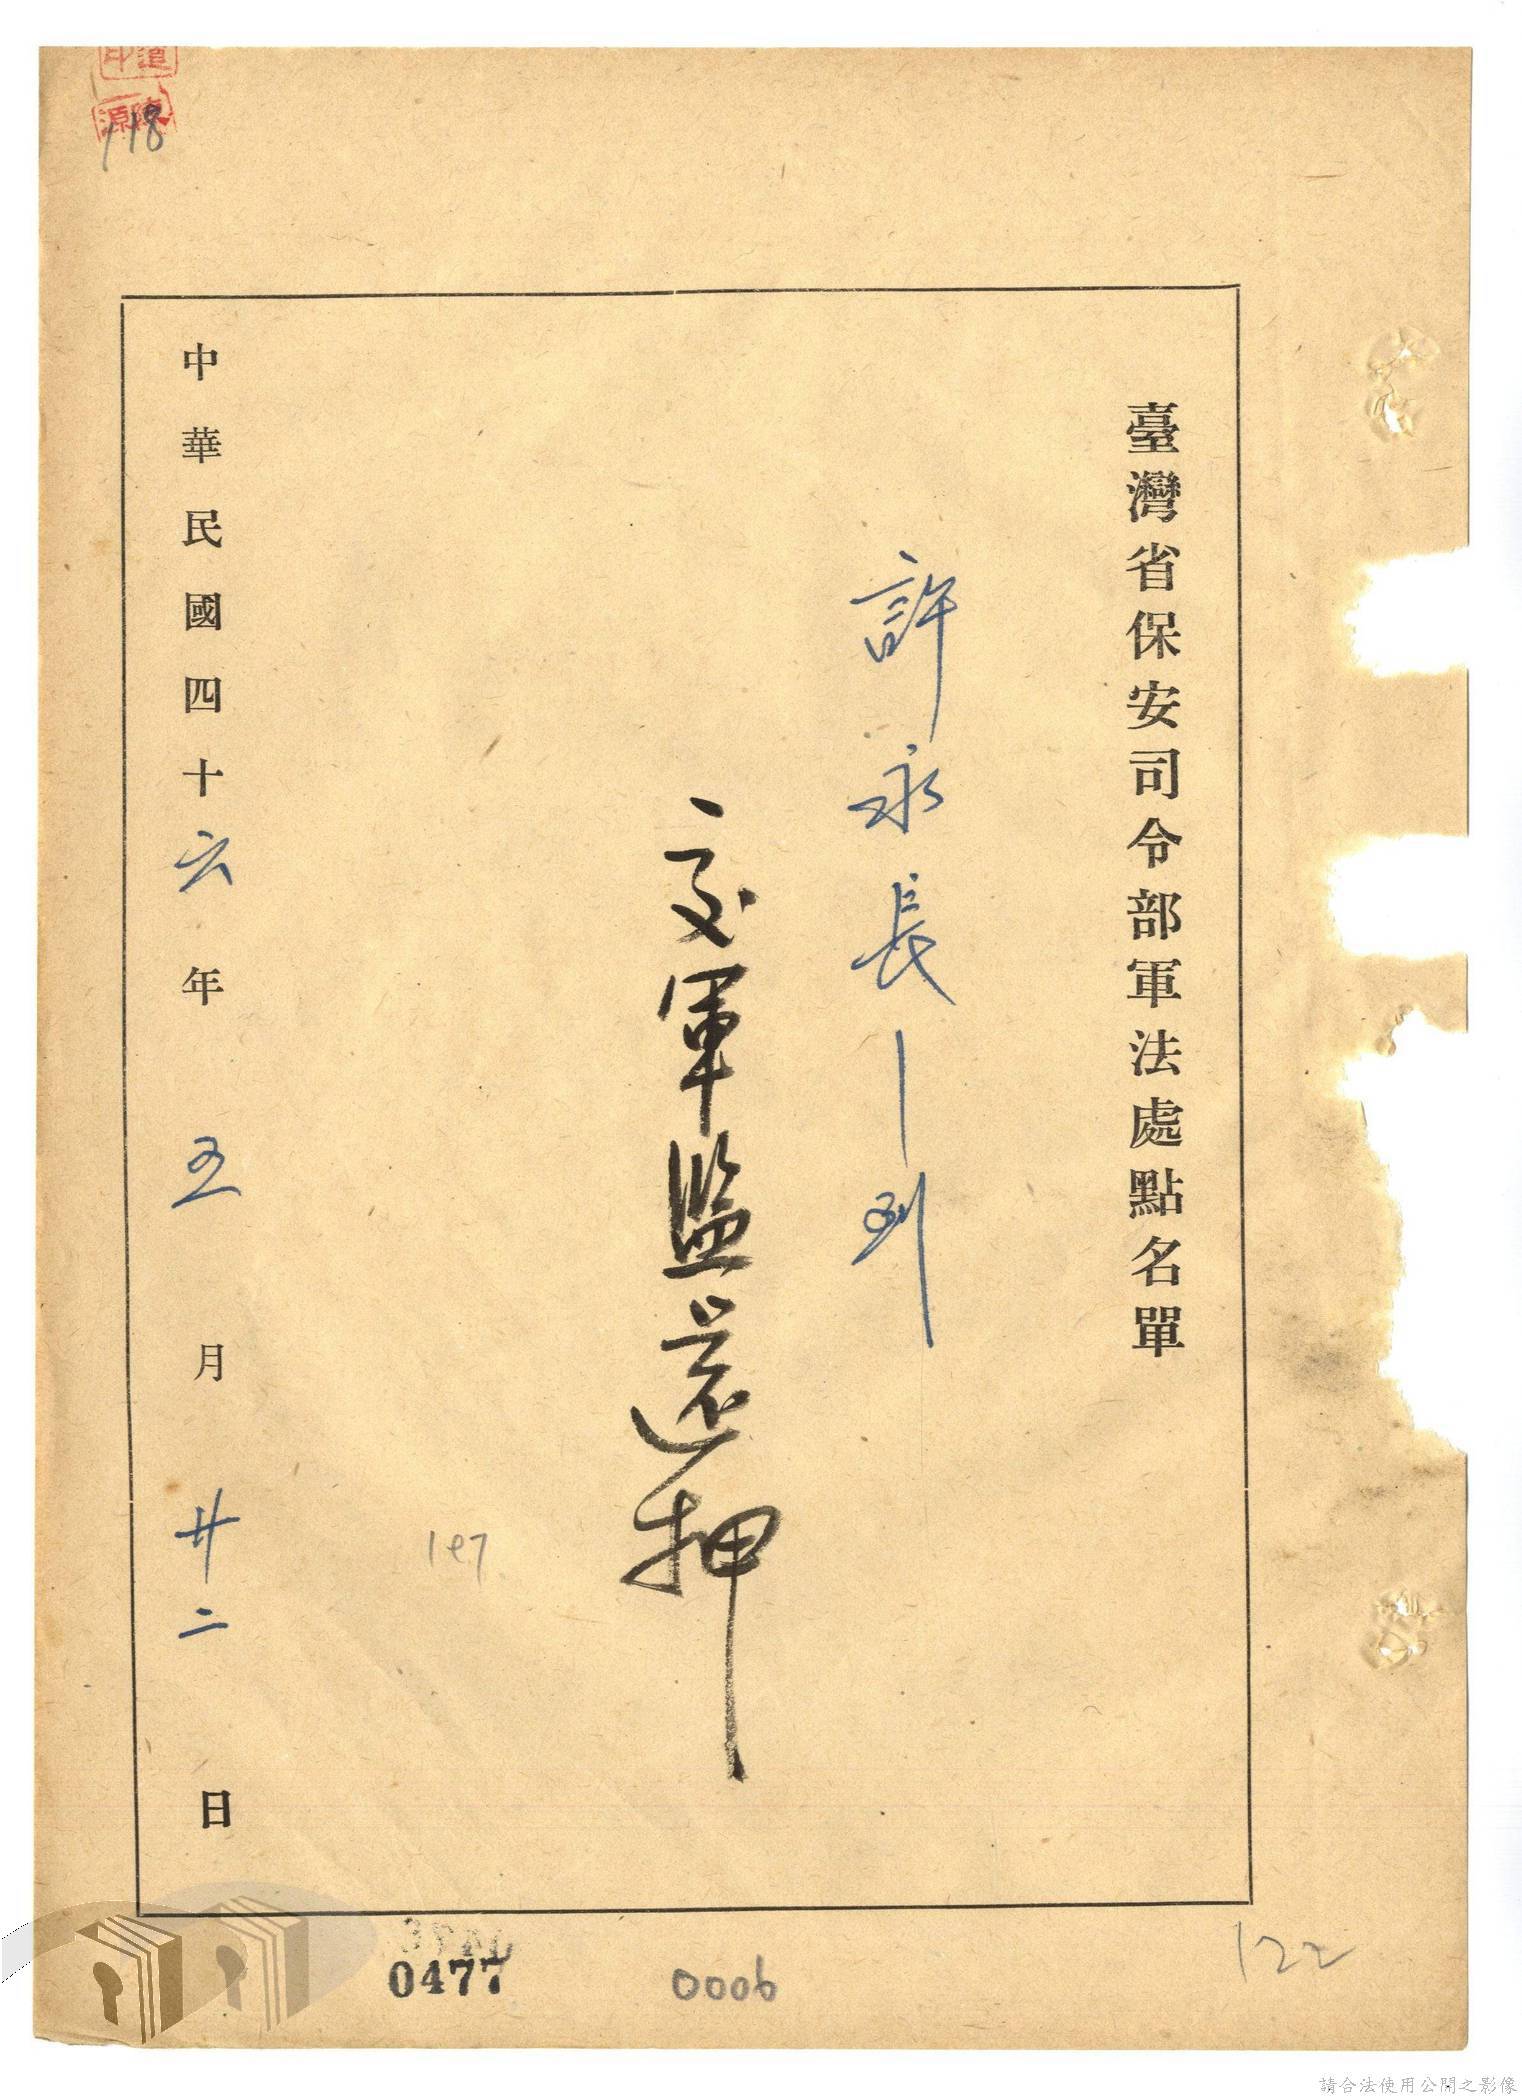 臺灣省保安司令部軍法處點名單
許永長—到
交軍監還押
中華民國四十六年五月廿二日
118
197
0477
0006
122
請合法使用公開之影像